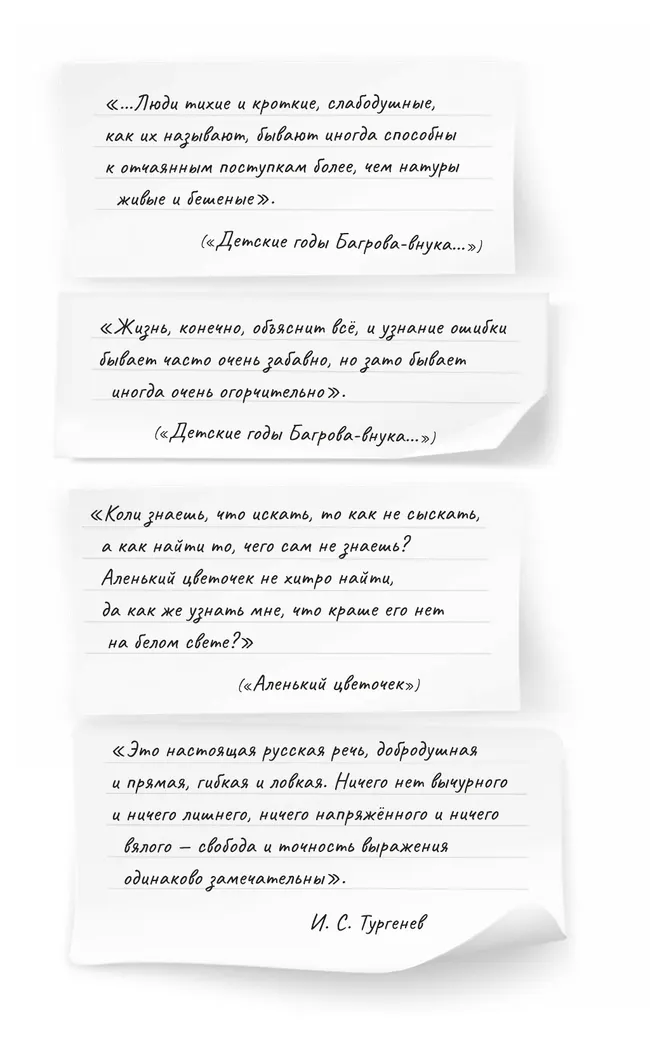 «...Люди тихие и кроткие, слабодушные,
как их называют, бывают иногда способны
к отчаянным поступкам более, чем натуры
живые и бешеные».
(«Детские годы Багрова-внука...»)
«Жизнь, конечно, объяснит всё, и узнание ошибки
бывает часто очень забавно, но зато бывает
иногда очень огорчительно».
(«Детские годы Багрова-внука...»)
«Коли знаешь, что искать, то как не сыскать,
а как найти то, чего сам не знаешь?
Аленький цветочек не хитро найти,
да как же узнать мне, что краше его нет
на белом свете?»
(«Аленький цветочек»)
«Это настоящая русская речь, добродушная
и прямая, гибкая и ловкая. Ничего нет вычурного
и ничего лишнего, ничего напряжённого и ничего
вялого — свобода и точность выражения
одинаково замечательны».
И. С. Тургенев